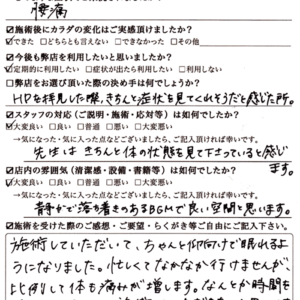 腰痛
☑施術後にカラダの変化はご実感頂けましたか?
☑できた □どちらとも言えない □できなかった □その他
☑今後も弊院を利用したいと思いましたか?
☑定期的に利用したい □症状が出たら利用したい □利用しない
□弊院をお選び頂いた際の決め手は何でしょうか?
HPを拝見した際、きちんと症状を見てくれそうだと感じた所。
☑スタッフの対応(ご説明・施術・応対等)は如何でしたか?
☑大変良い □良い □普通 □悪い □大変悪い
→気になった・気に入った点などございましたら、ご記入頂ければ幸いです。
先生は きちんと体の状態を見て下さっていると感じ
ます。
☑店内の雰囲気(清潔感・設備・書籍等)は如何でしたか?
☑大変良い □良い □普通 □悪い □大変悪い
→気になった・気に入った点などございましたら、ご記入頂ければ幸いです。
静かで落ち着きのあるBGMで良い空間と思います。
☑施術を受けた際のご感想・ご要望・らくがき等ご自由にご記入下さい。
施術していただいて、ちゃんと仰向けで眠れるよ
うになりました。忙しくてなかなか行けませんが、
比例して体も痛みが増します。なんとか時間を